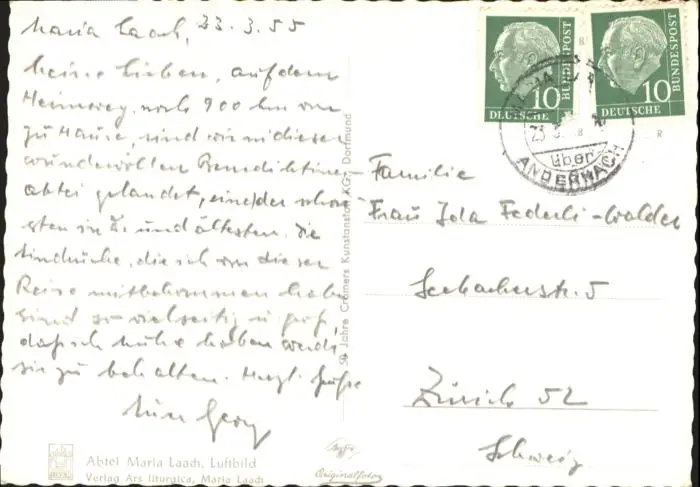 Maria Laach, 23.3.55
Meine Lieben, auf dem
Heimweg, noch 900 km von
zu Hause, sind wir in dieser
wundervollen Benediktiner-
abtei gelandet, eine der schön-
sten in D. und ältesten. Die
Eindrücke, die ich von dieser
Reise mitbekommen habe
sind so vielseitig u. groß,
daß ich Mühe haben werde
sie zu behalten. Herzl. Grüße
Euer Georg
Abtei Maria Laach, Luftbild
Verlag Ars liturgica, Maria Laach
50 Jahre Cramers Kunstanstalt KG, Dortmund
Originalfoto
10 DEUTSCHE BUNDESPOST
10 DEUTSCHE BUNDESPOST
über
ANDERNACH
Familie
Frau Ida Federli-Walder
Seebacherstr. 5
Zürich 52
Schweiz